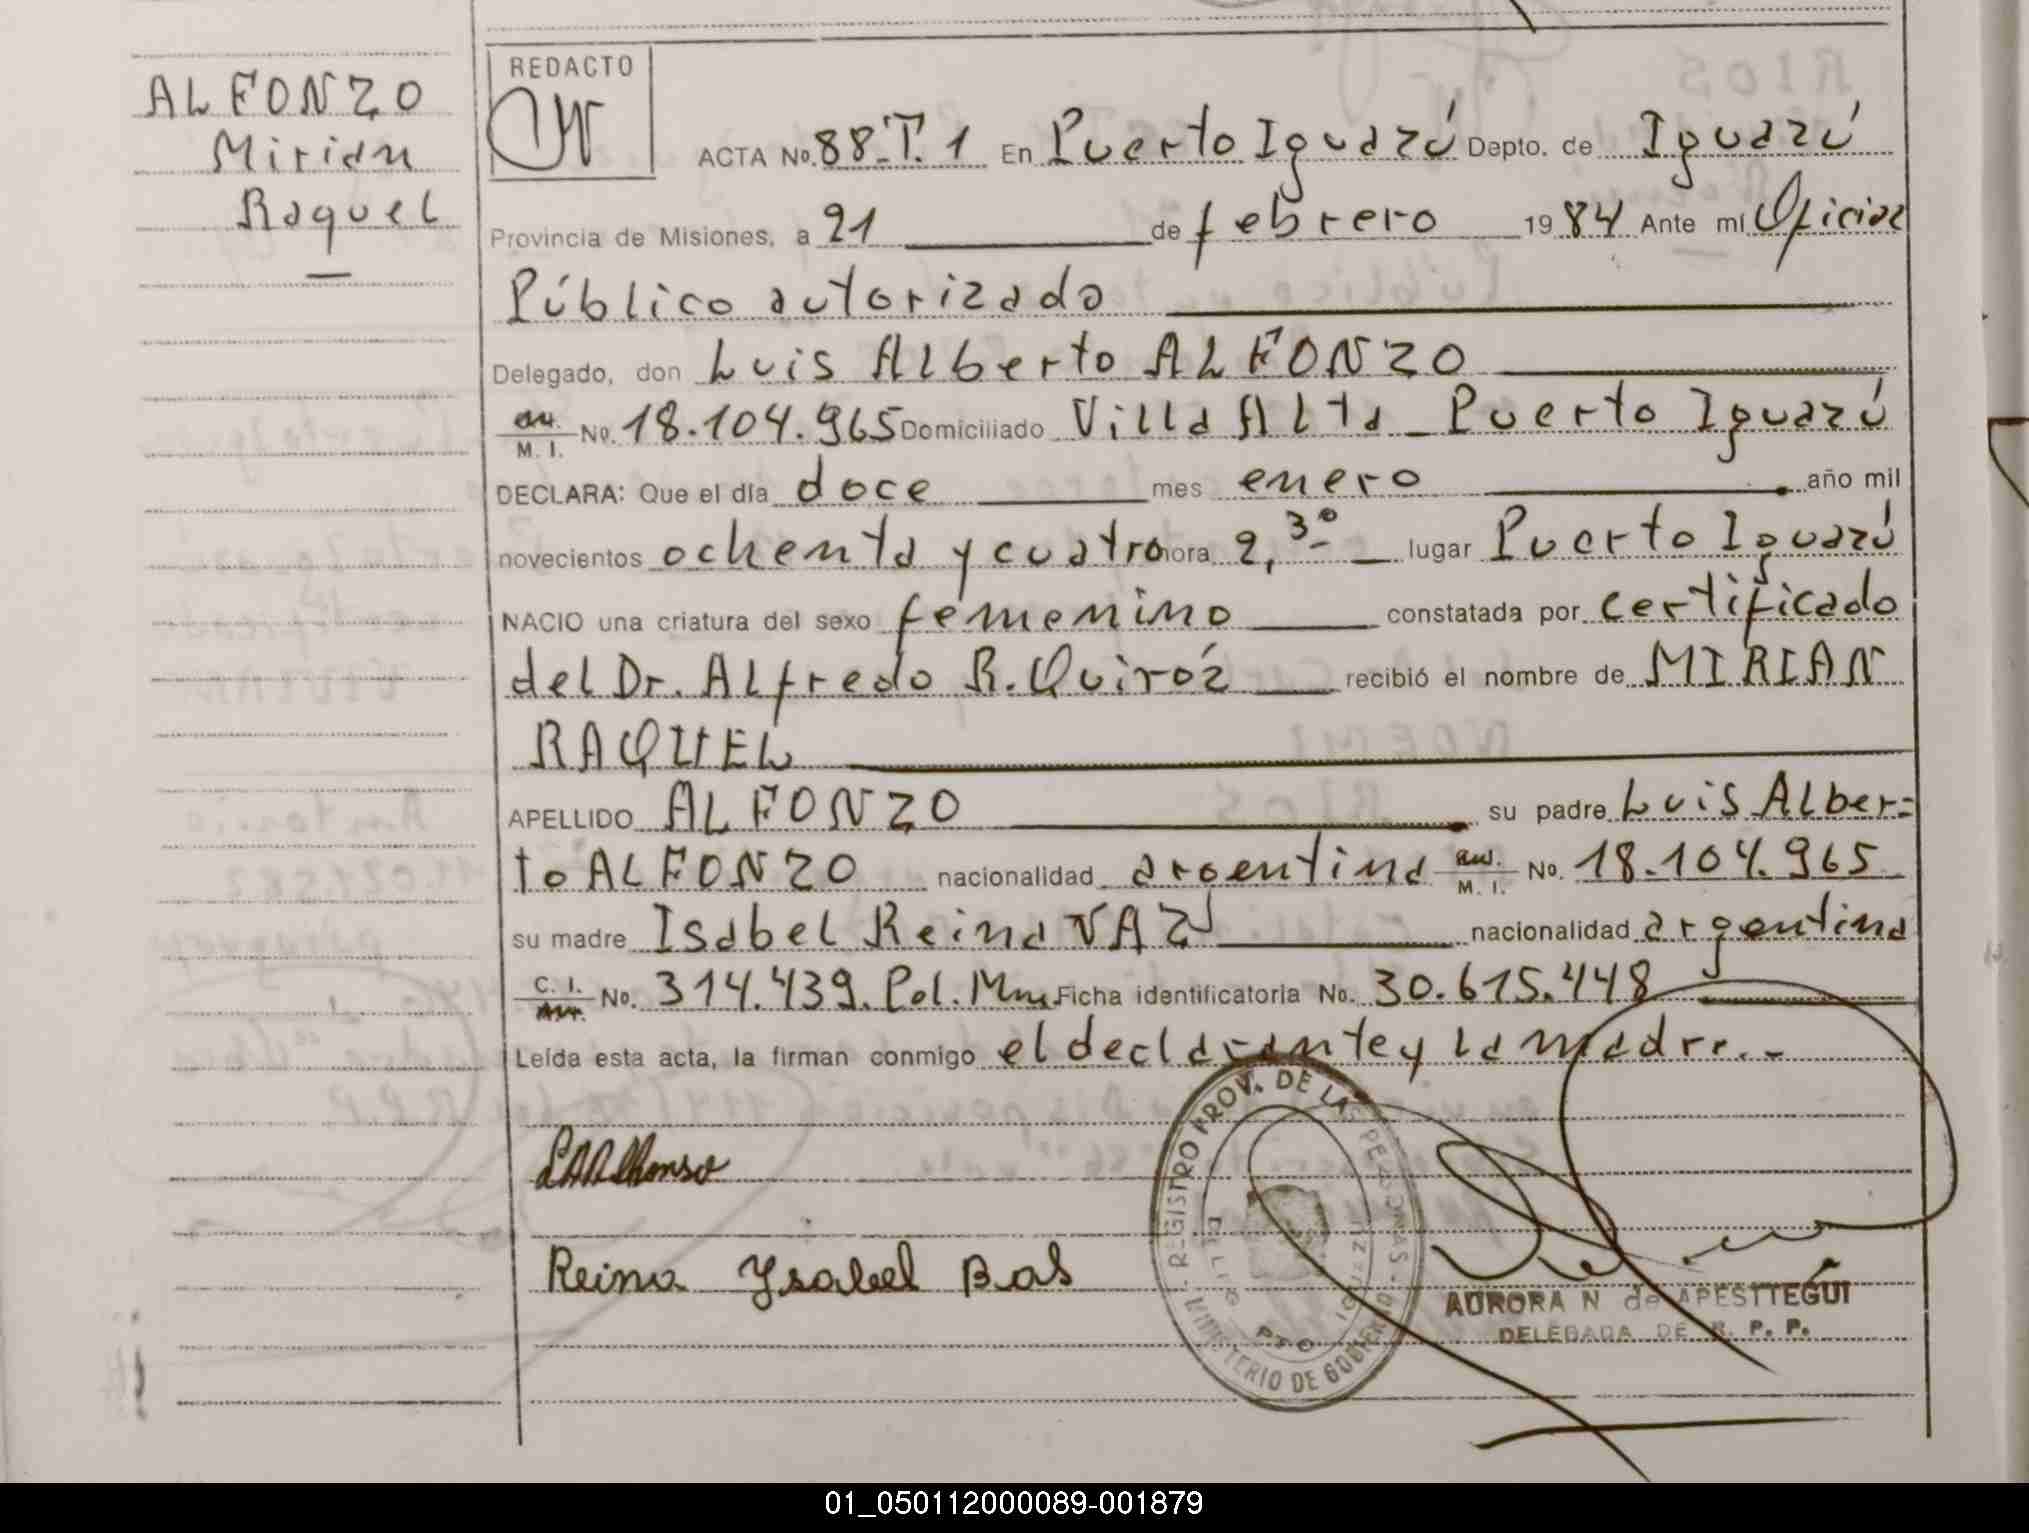 ALFONZO
Mirian
Raquel
REDACTO
ACTA No. 88_T.1 En Puerto Iguazú Depto. de Iguazú
Provincia de Misiones, a 21 de febrero 1984 Ante mí Oficial
Público autorizado
Delegado, don Luis Alberto ALFONZO
M. I. No. 18.104.965 Domiciliado Villa Alta _ Puerto Iguazú
DECLARA: Que el día doce mes enero año mil
novecientos ochenta y cuatro hora 2,30 lugar Puerto Iguazú
NACIO una criatura del sexo femenino constatada por certificado
del Dr. Alfredo R. Quiróz recibió el nombre de MIRIAN
RAQUEL
APELLIDO ALFONZO su padre Luis Alber=
to ALFONZO nacionalidad argentina M. I. No. 18.104.965
su madre Isabel Reina VAZ nacionalidad argentina
C. I. No. 314.439. Pol. Mnes Ficha identificatoria No. 30.615.448
Leída esta acta, la firman conmigo el declarante y la madre.-
Reina Ysabel Bas
REGISTRO PROV. DE LAS PERSONAS - MINISTERIO DE GOBIERNO
PTO IGUAZU
AURORA N de APESTTEGUI
DELEGADA DE R. P. P.
01_050112000089-001879